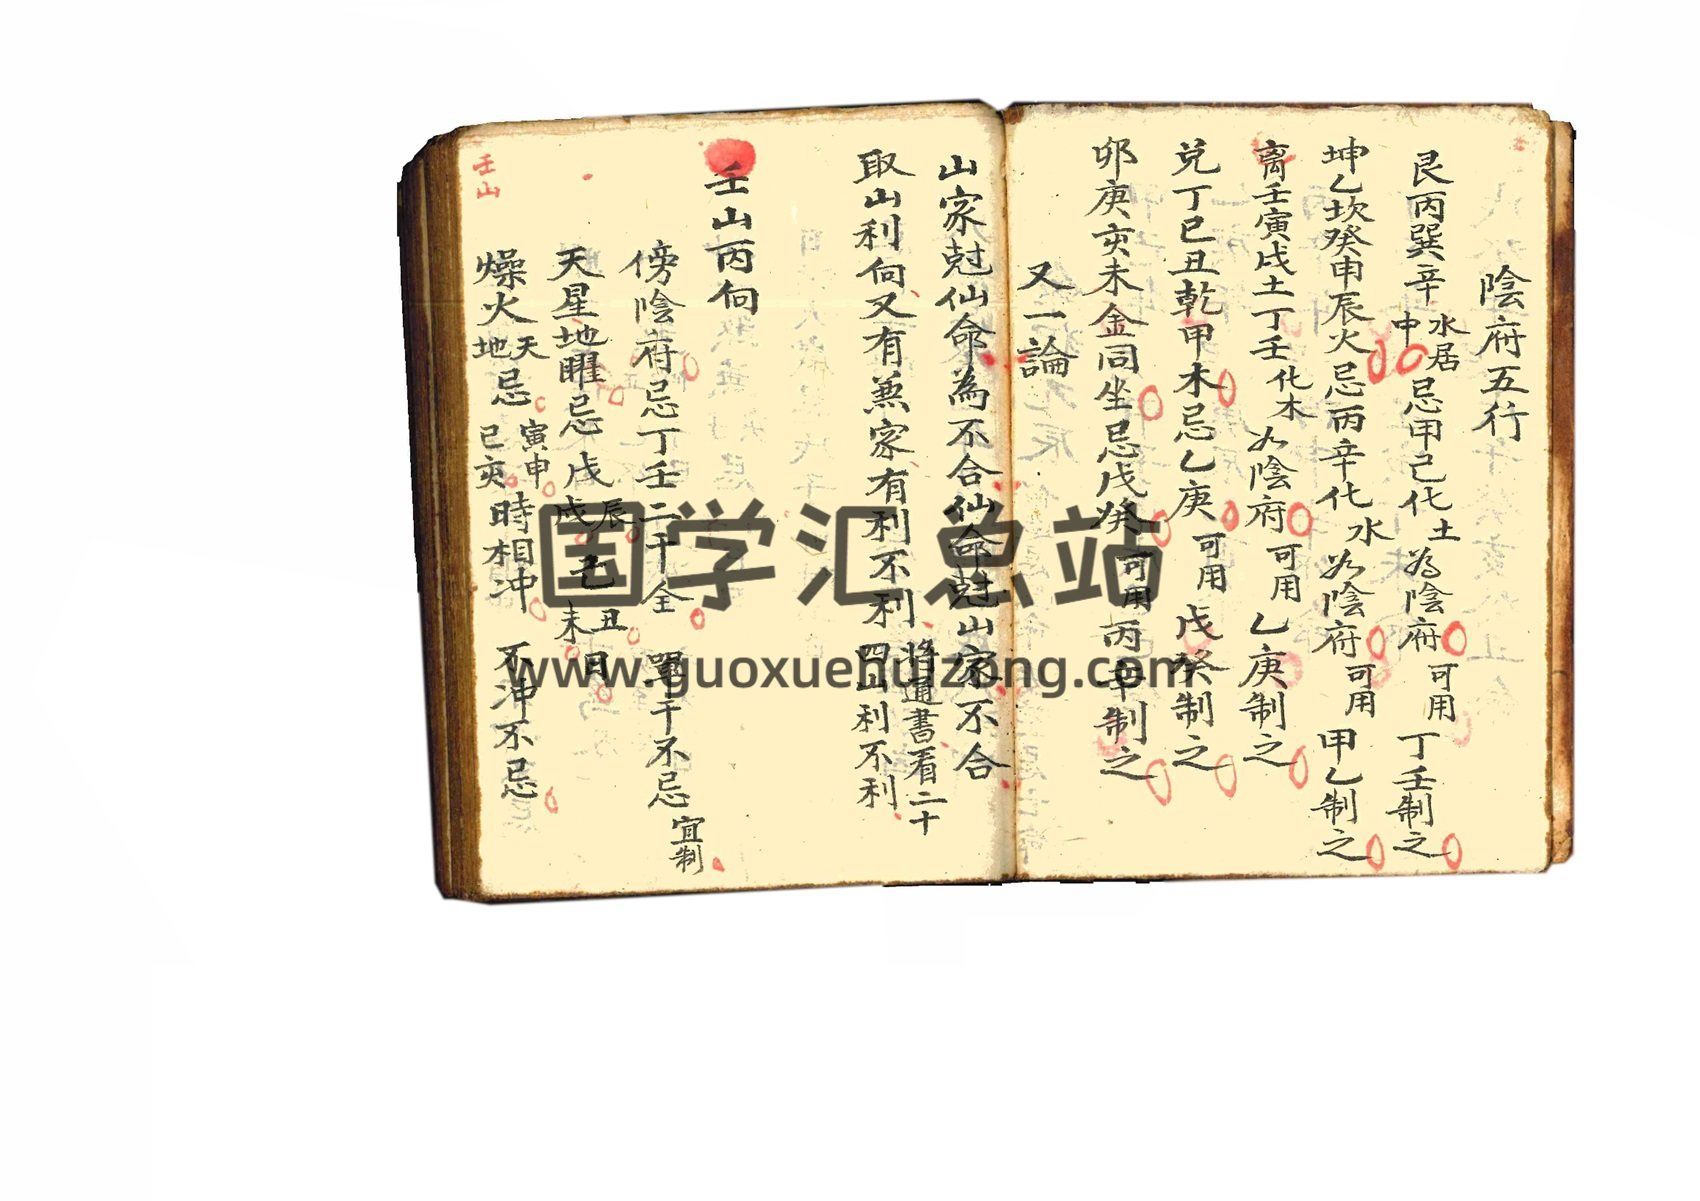 陰府五行
艮丙巽辛水居申忌甲己化土為陰府可用丁壬制之
坤乙坎癸申辰火忌丙辛化水為陰府可用甲乙制之
离壬寅戌土丁壬化木為陰府可用乙庚制之
兌丁巳丑乾甲木忌乙庚可用戊癸制之
卯庚亥未金同坐忌戊癸可用丙辛制之
又一論
山家尅仙命為不合仙命尅山家不合
取山利向又有兼家有利不利將通書看二十四山利不利
壬山丙向
傍陰府忌丁壬二干全單干不忌宜制
天星地曜忌戊辰戌己丑未日
燥火天地忌寅申巳亥時相冲不冲不忌
壬山
国学汇总站
www.guoxuehuizong.com